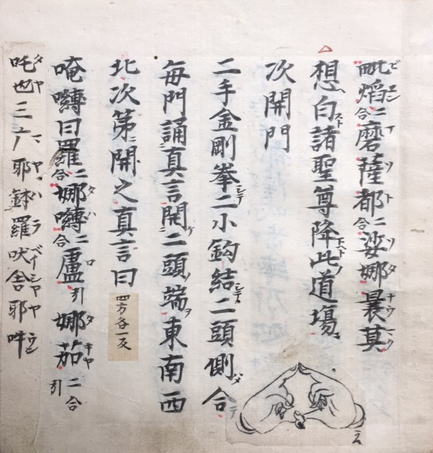 毗焰二合磨薩都二合娑娜曩莫
想白諸聖尊降此道場
次開門
二手金剛拳二小鈎結二頭側合
每門誦真言開二頭端東南西
北次第開之真言曰 四方各一反
唵嚩日羅二合娜嚩二合盧引娜茄二合引
吒也三广耶鉢羅吠舍耶吽